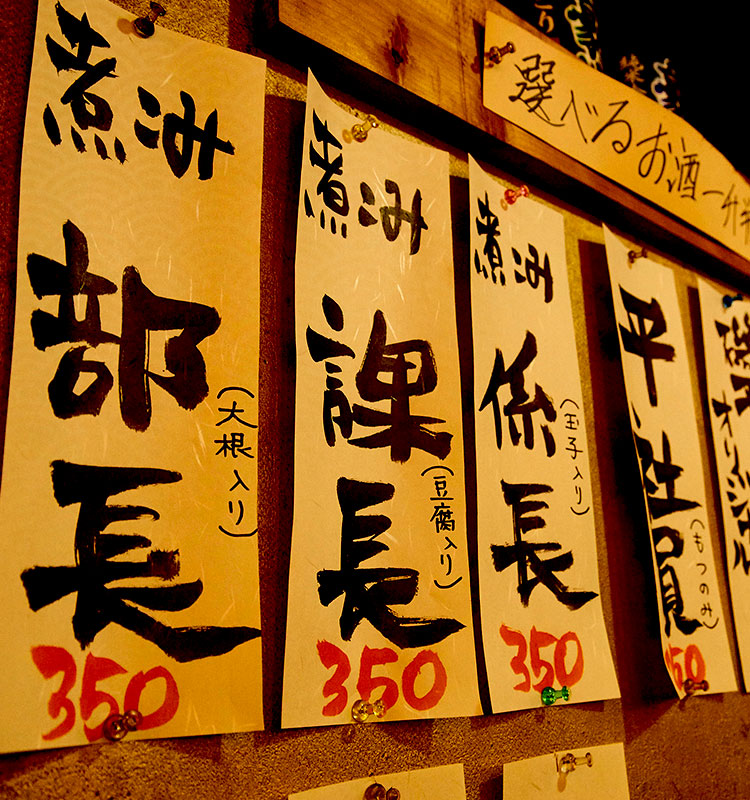 選べるお酒一升
煮こみ
部長
(大根入り)
350
煮こみ
課長
(豆腐入り)
350
煮こみ
係長
(玉子入り)
350
平社員
(もつのみ)
50
オリジナル